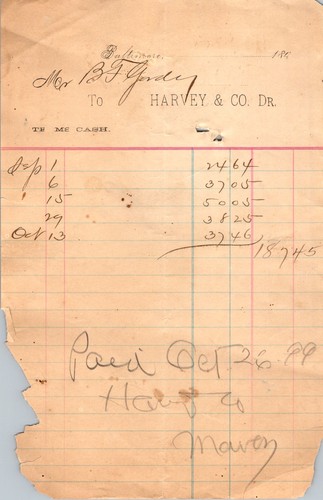 Baltimore, 188
Mr B F
To HARVEY & CO. DR.
TERMS CASH.
Sep 1 2464
6 3705
15 5005
29 3825
Oct 13 3746
18745
Paid Oct 26 99
Harvey Co